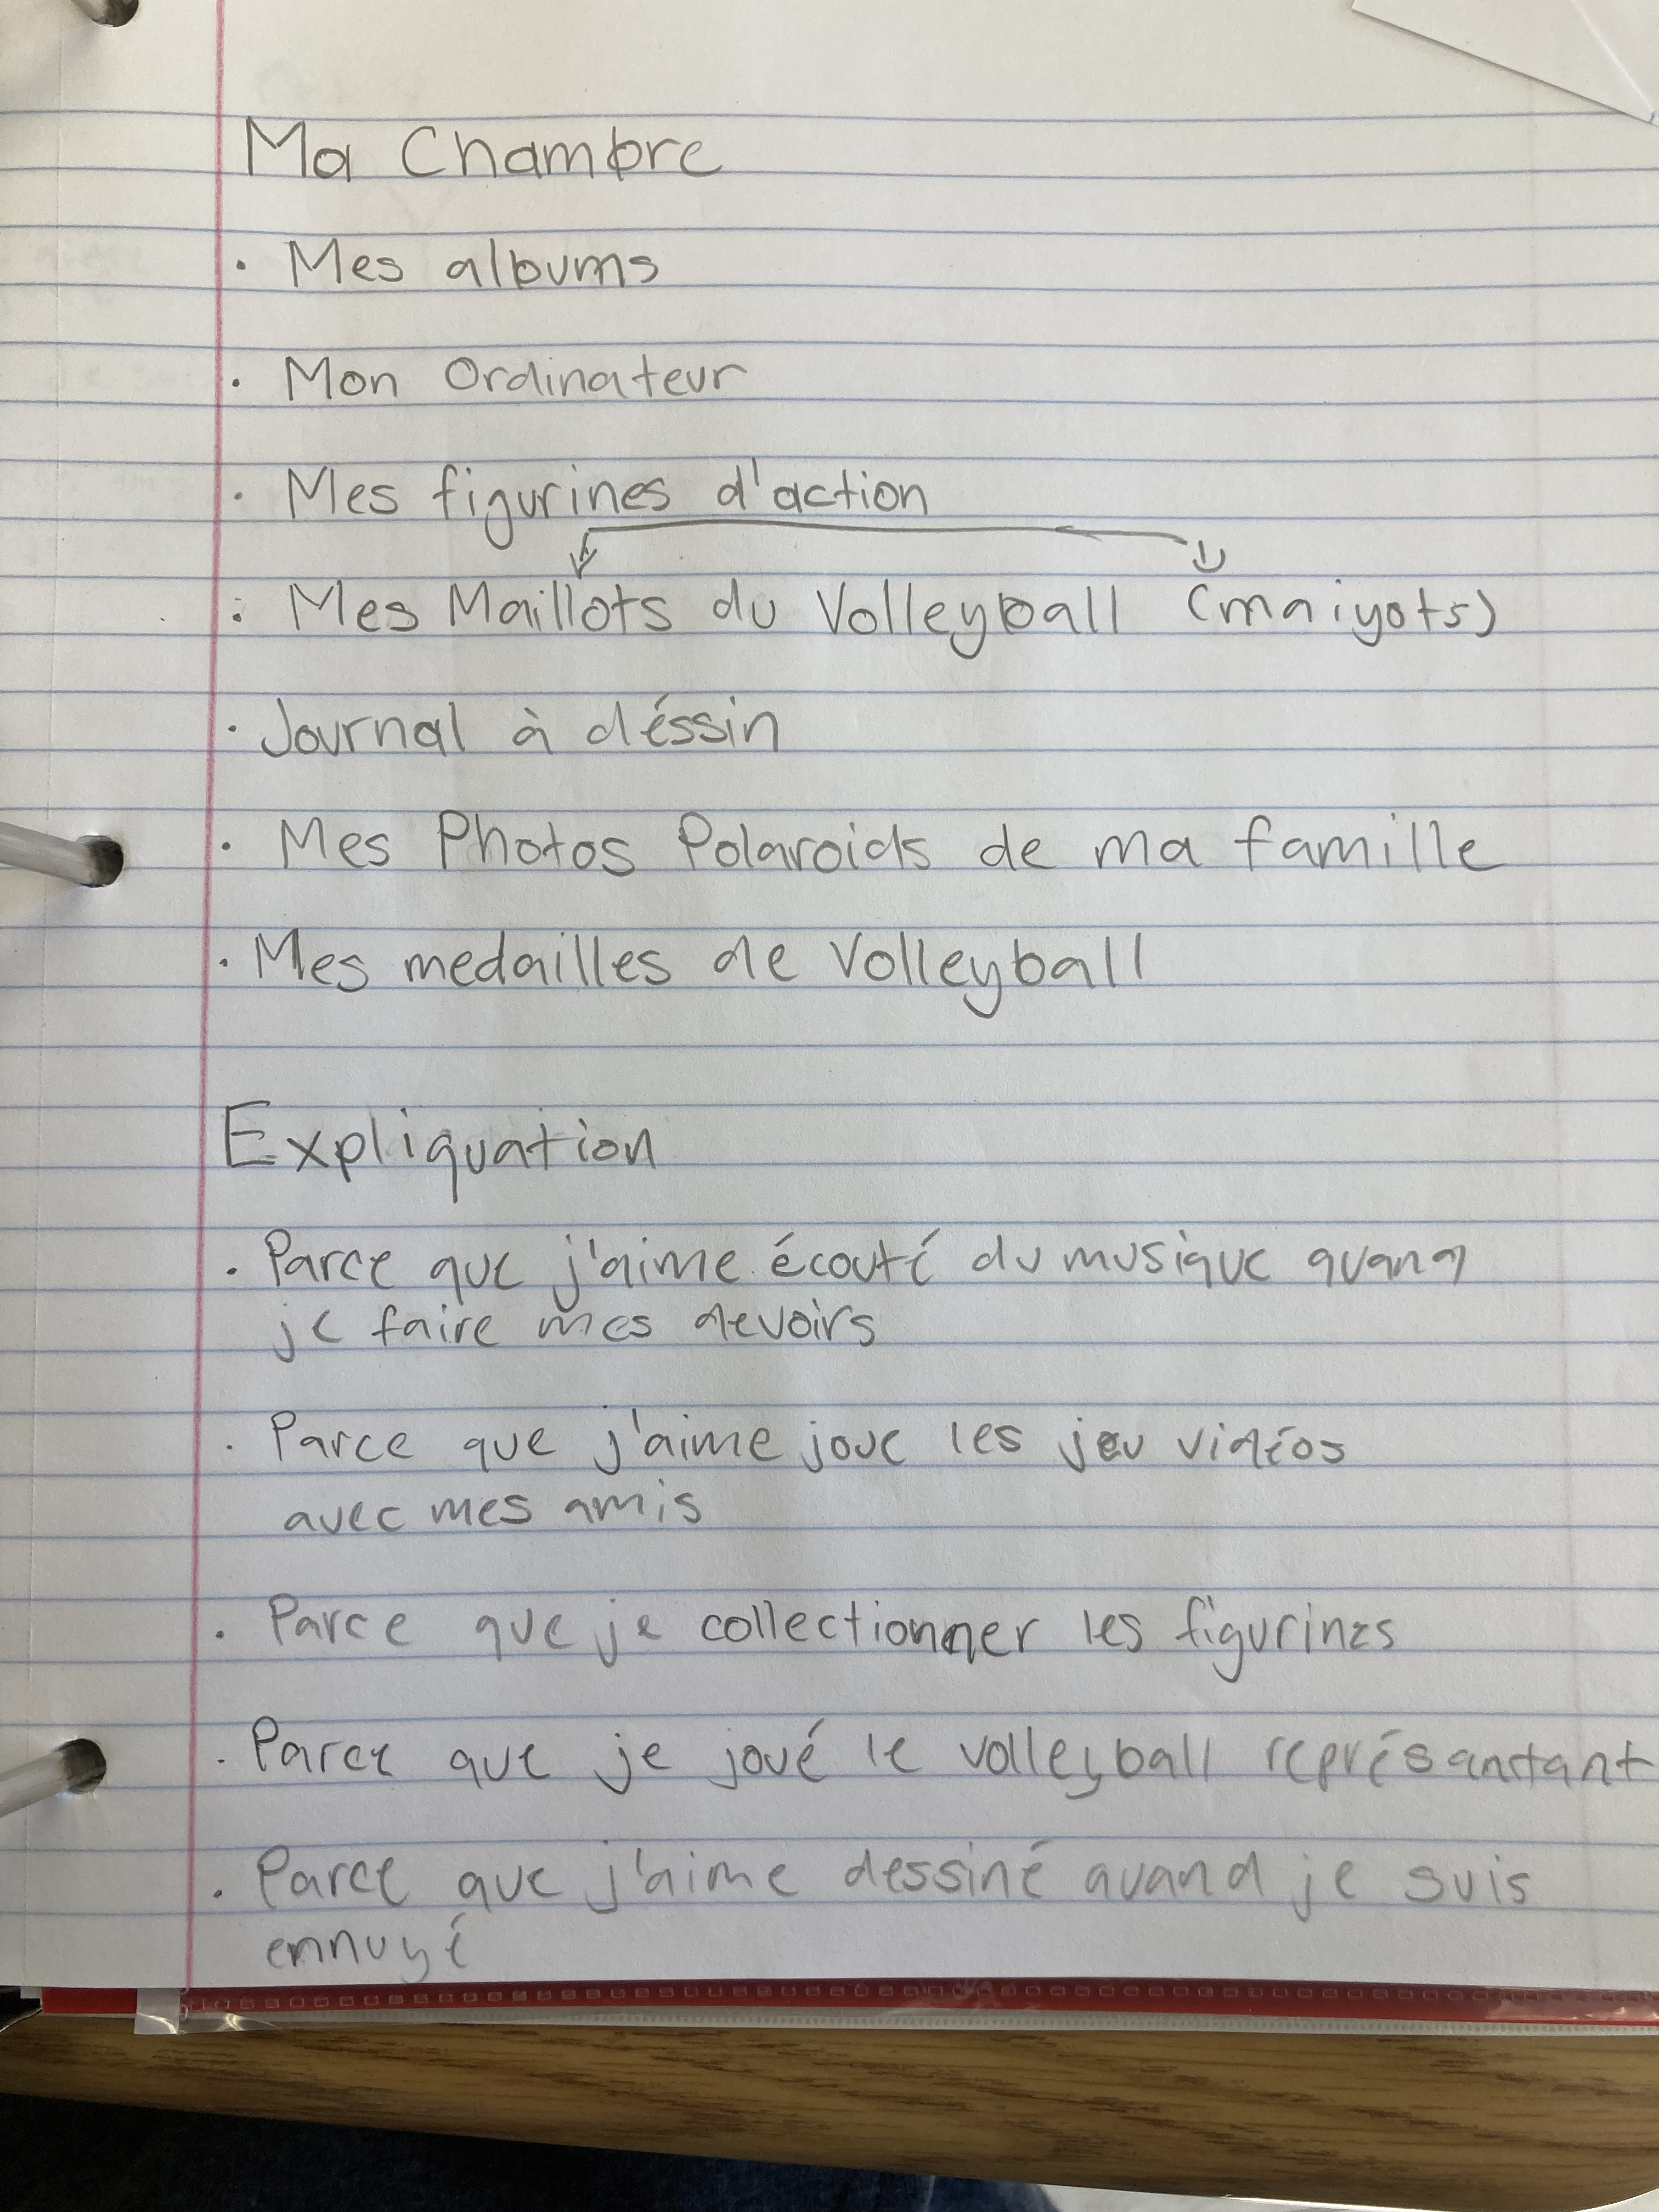 Ma Chambre
· Mes albums
· Mon Ordinateur
· Mes figurines d'action
· Mes Maillots du Volleyball (maiyots)
· Journal à déssin
· Mes Photos Polaroids de ma famille
· Mes medailles de Volleyball
Expliquation
· Parce que j'aime écouté du musique quand
je faire mes devoirs
· Parce que j'aime joue les jeu vidéos
avec mes amis
· Parce que je collectionner les figurines
· Parce que je joué le volleyball
· Parce que j'aime dessiné quand je suis
ennuyé